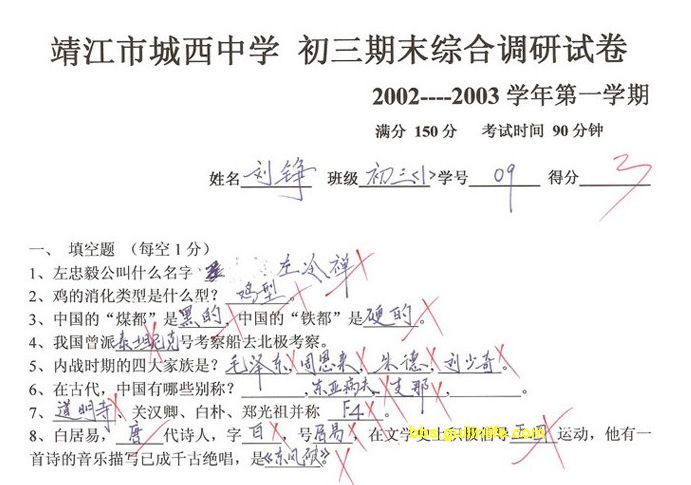 靖江市城西中学 初三期末综合调研试卷
2002----2003 学年第一学期
满分 150 分 考试时间 90 分钟
姓名 刘铮 班级 初三<1> 学号 09 得分 3
一、 填空题 （每空 1 分）
1、左忠毅公叫什么名字 左冷禅
2、鸡的消化类型是什么型？ 鸡型 。
3、中国的“煤都”是 黑的 ，中国的“铁都”是 硬的 。
4、我国曾派 泰坦尼克 号考察船去北极考察。
5、内战时期的四大家族是？ 毛泽东、周恩来、朱德、刘少奇 。
6、在古代，中国有哪些别称？ ，东亚病夫，支那， 。
7、道明寺、关汉卿、白朴、郑光祖并称 F4 。
8、白居易， 唐 代诗人，字 白 ，号 居易 ，在文学史上积极倡导 运动，他有一
首诗的音乐描写已成千古绝唱，是《东风破》。